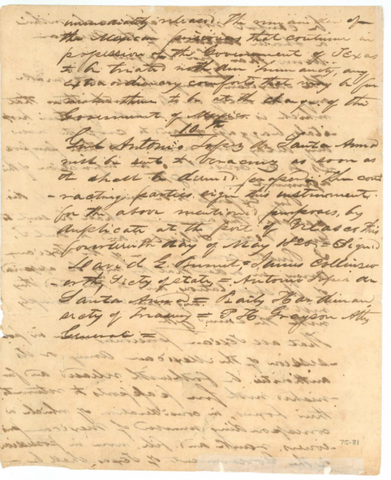 immediately released. The remainder of
the Mexican prisoners that continue in
possession of the Government of Texas
to be treated with due humanity, any
extraordinary comforts that may be fur
to be at the charge of the
Government of Mexico.
10th
Genl Antonio Lopez de Santa Anna
will be sent to Veracruz as soon as
it shall be deemed proper. The cont
racting parties sign this instrument
for the above mentioned purposes, by
duplicate at the port of Velasco this
fourteenth day of May 1836 = Signed
David G Burnet = James Collinsw
orth, Secty of State = Antonio Lopez de
Santa Anna = Baily Hardiman
secty of Treasury = P. H. Grayson Atty
General =
75-21